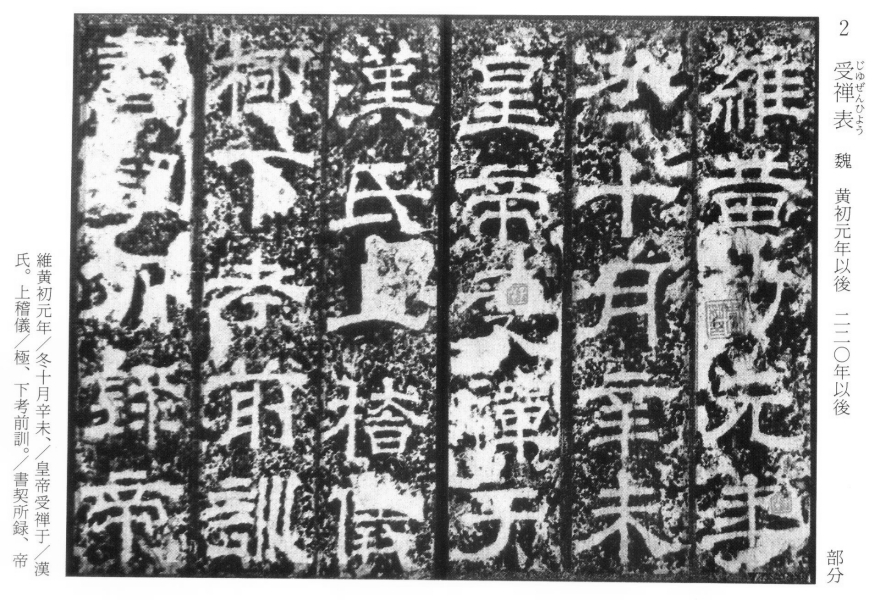 2 受禅表 魏 黄初元年以後 二二〇年以後 部分
じゆぜんひよう
維黄初元年
冬十月辛未
皇帝受禪于
漢氏上稽儀
極下考前訓
書契所録帝
維黄初元年／冬十月辛未、／皇帝受禅于／漢
氏。上稽儀／極、下考前訓。／書契所録、帝